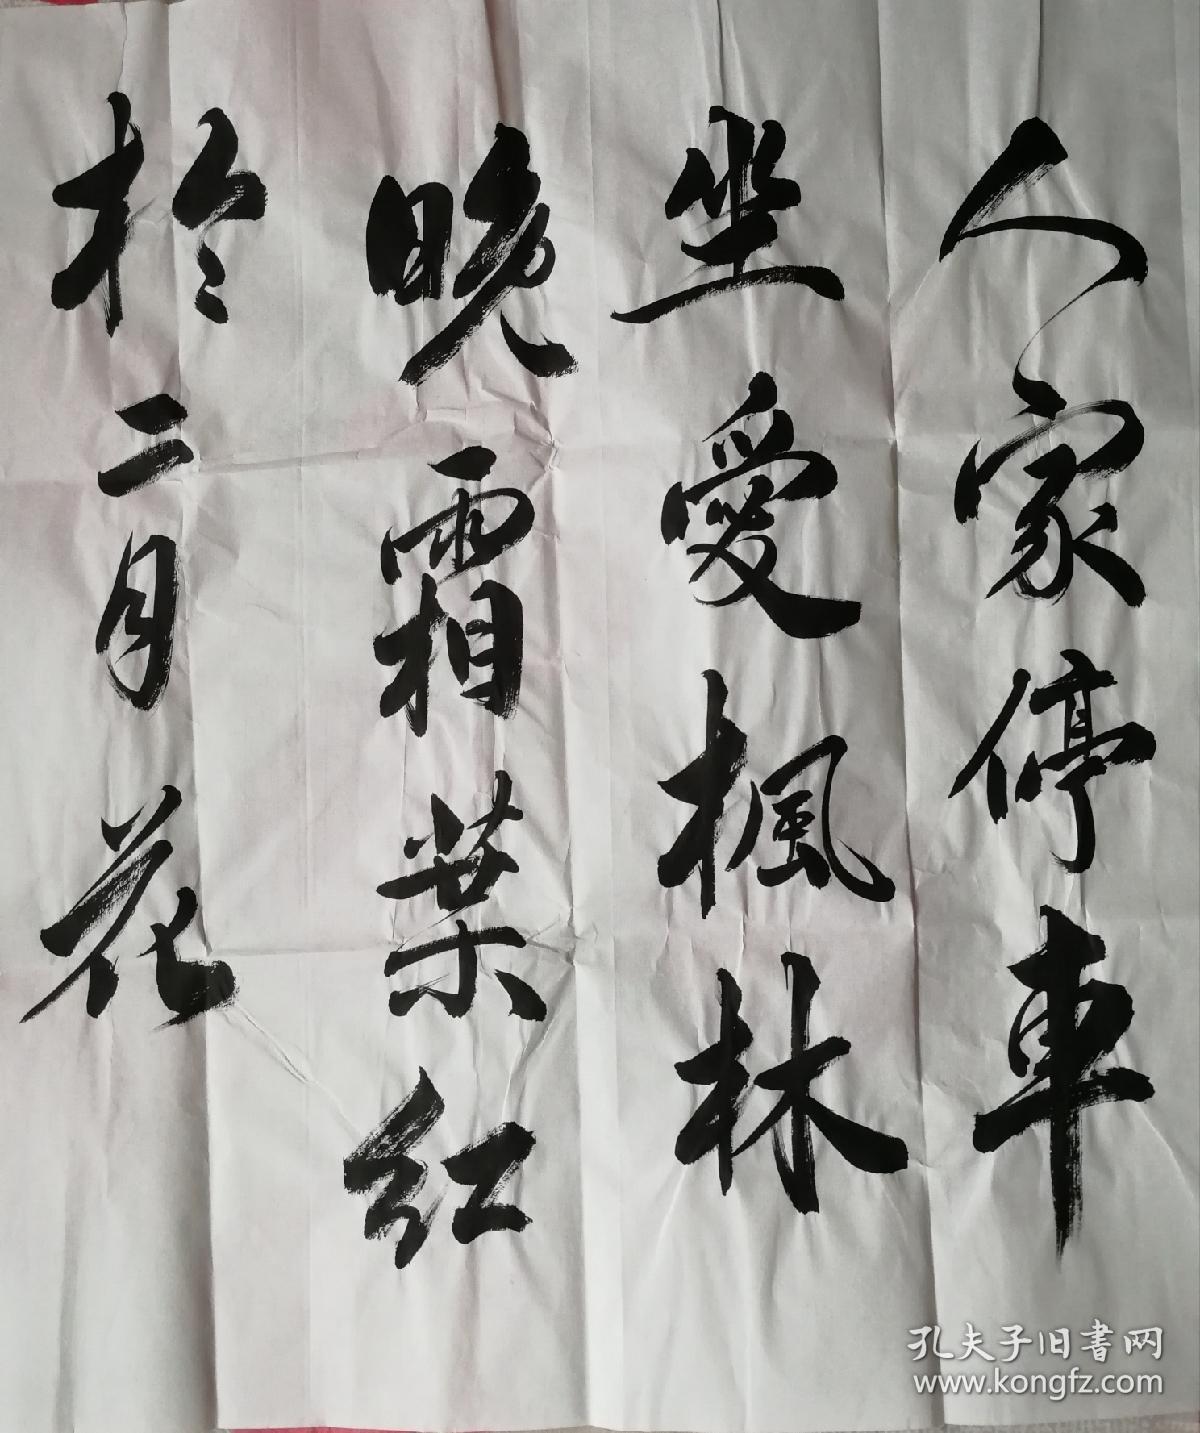 人家停車
坐愛楓林
晚霜葉紅
於二月花
孔夫子旧书网
www.kongfz.com